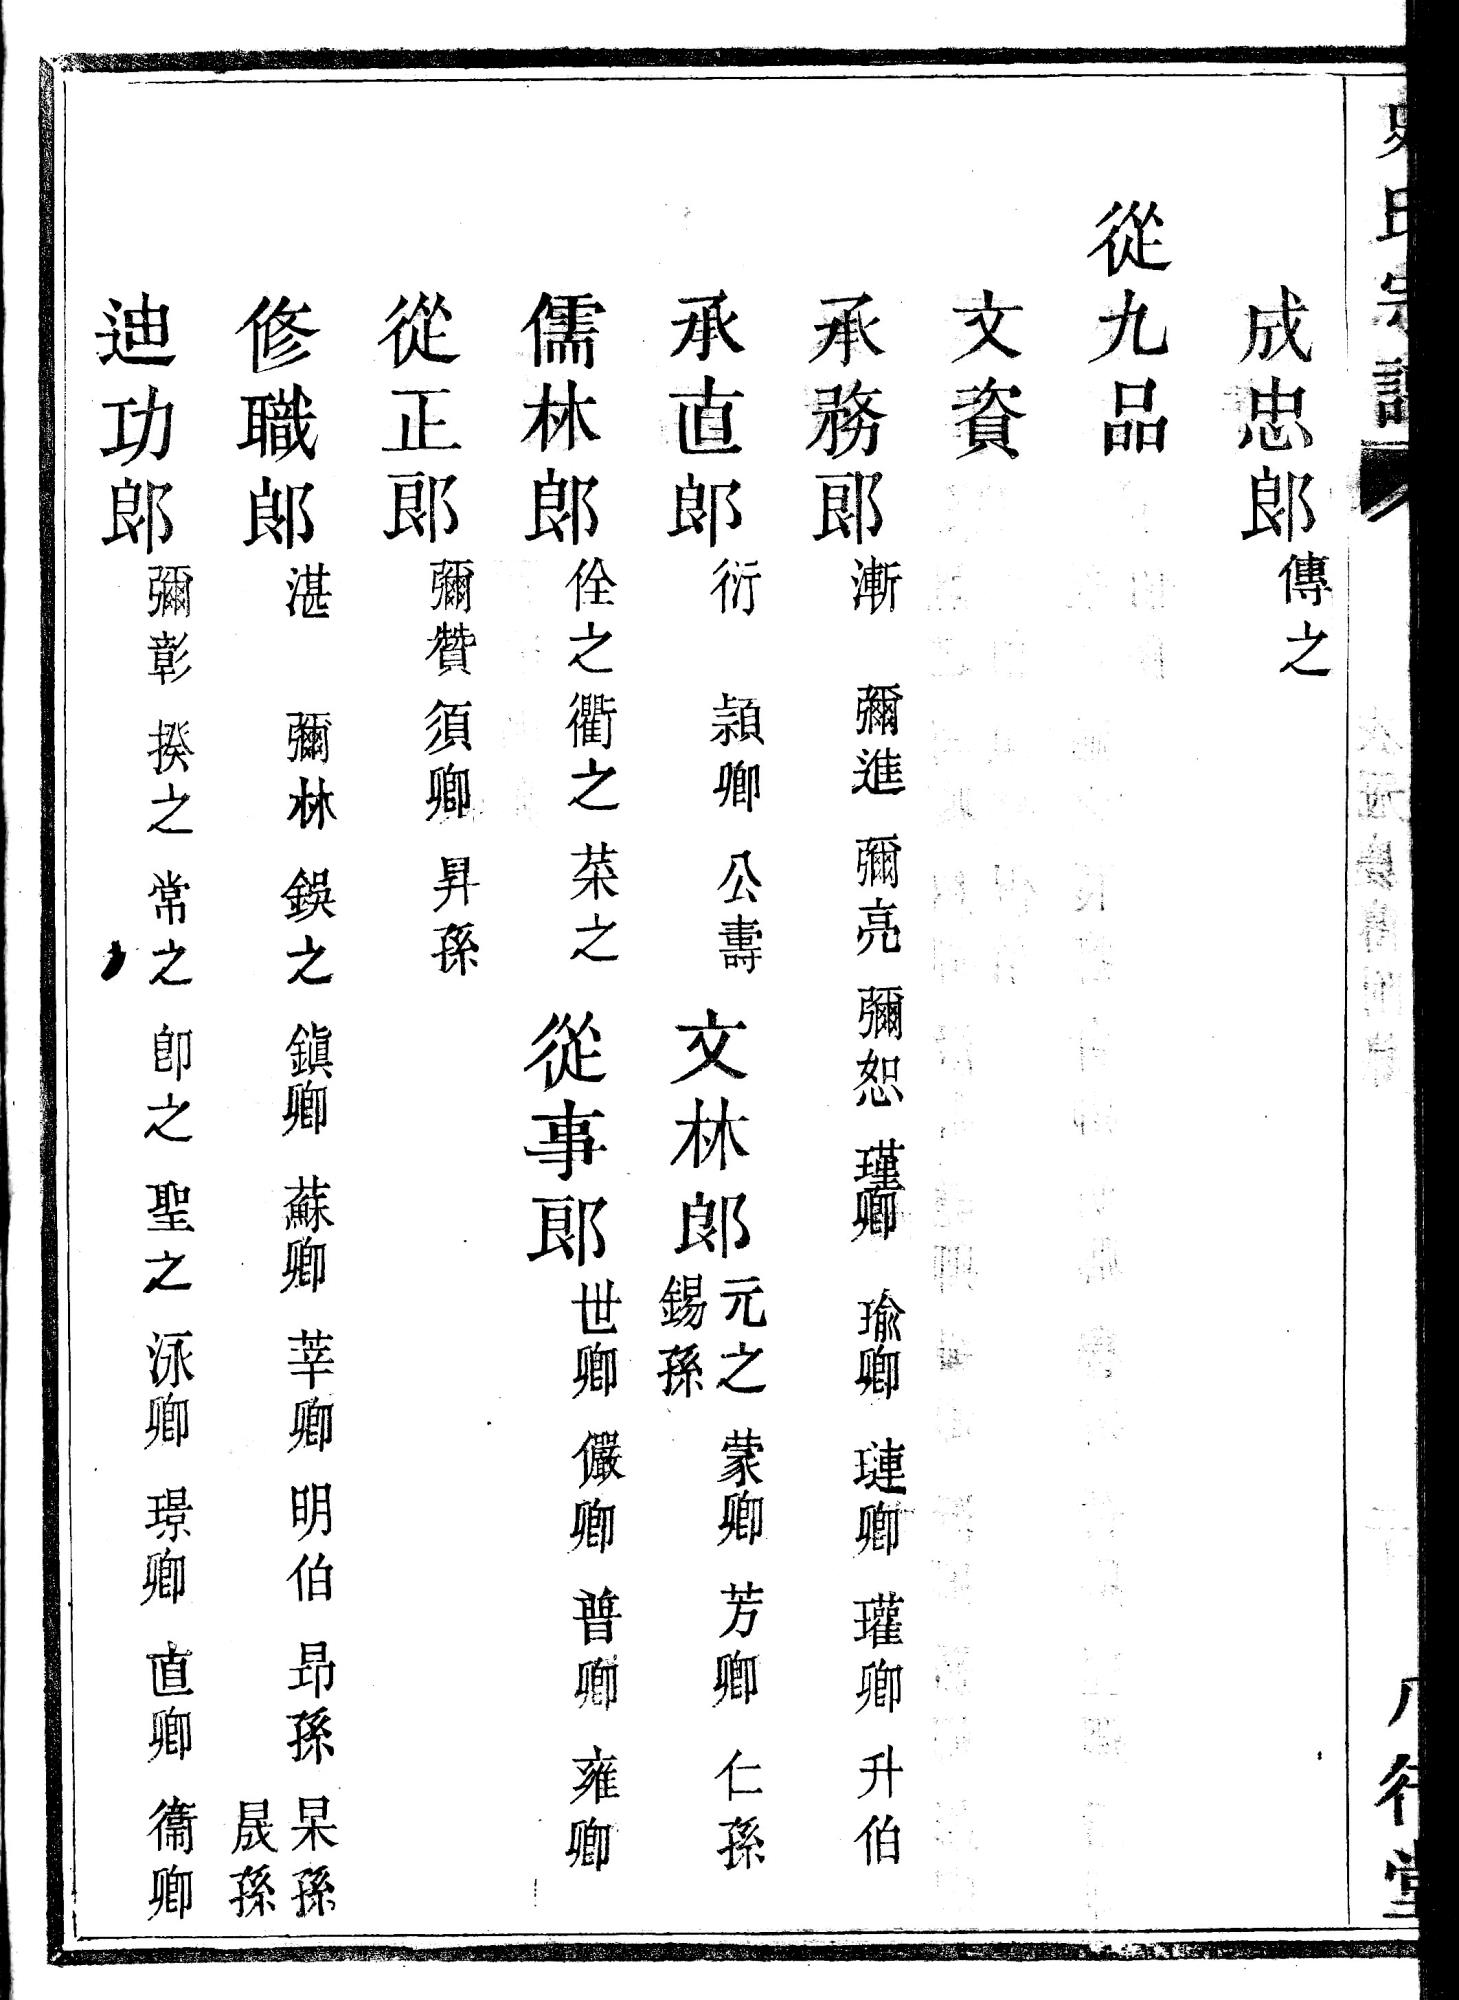 氏宗譜
成忠郎 傳之
從九品
文資
承務郎 漸 彌進 彌亮 彌恕 瑾卿 瑜卿 璉卿 瓘卿 升伯
承直郎 衍 頴卿 公壽 文林郎 元之 錫孫 蒙卿 芳卿 仁孫
儒林郎 佺之 衢之 菜之 從事郎 世卿 儼卿 普卿 雍卿
從正郎 彌贊 須卿 昇孫
修職郎 湛 彌林 鋘之 鎭卿 蘇卿 莘卿 明伯 昂孫 杲孫 晟孫
迪功郎 彌彰 揆之 常之 卽之 聖之 泳卿 璟卿 直卿 衞卿